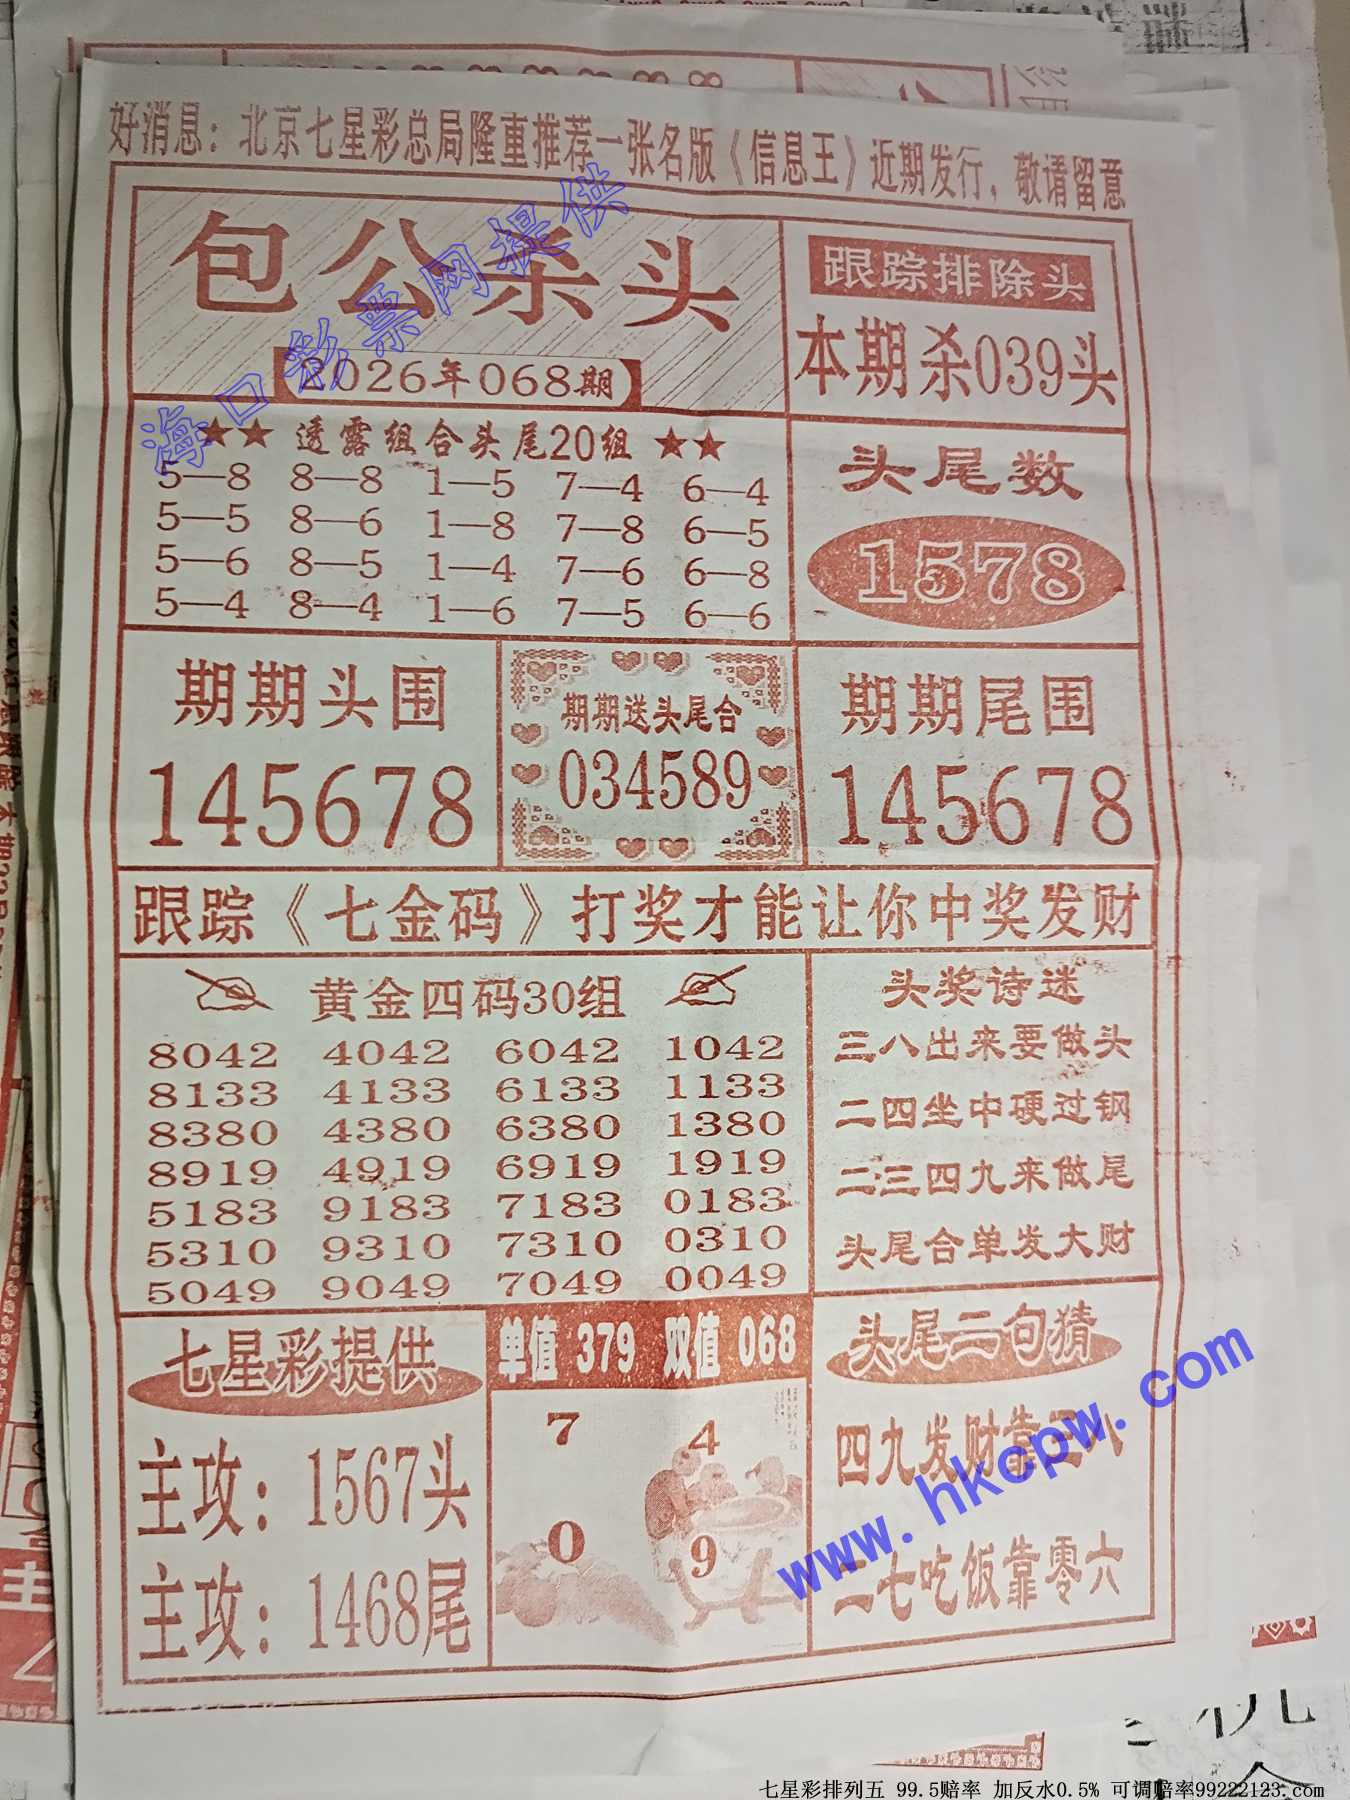 好消息：北京七星彩总局隆重推荐一张名版《信息王》近期发行，敬请留意
包公杀头
2026年068期
跟踪排除头
本期杀039头
★★ 透露组合头尾20组 ★★
5—8 8—8 1—5 7—4 6—4
5—5 8—6 1—8 7—8 6—5
5—6 8—5 1—4 7—6 6—8
5—4 8—4 1—6 7—5 6—6
头尾数
1578
期期头围
145678
期期送头尾合
034589
期期尾围
145678
跟踪《七金码》打奖才能让你中奖发财
黄金四码30组
8042 4042 6042 1042
8133 4133 6133 1133
8380 4380 6380 1380
8919 4919 6919 1919
5183 9183 7183 0183
5310 9310 7310 0310
5049 9049 7049 0049
头奖诗迷
三八出来要做头
二四坐中硬过钢
二三四九来做尾
头尾合单发大财
七星彩提供
主攻：1567头
主攻：1468尾
单值 379 双值 068
7 4
0 9
头尾二句猜
四九发财靠三八
二七吃饭靠零六
海口彩票网提供
www.hkcpw.com
七星彩排列五 99.5赔率 加反水0.5% 可调赔率99222123.com